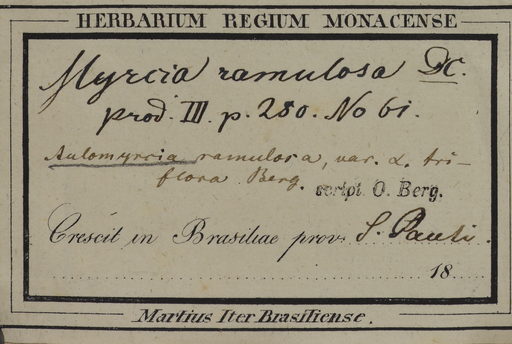 HERBARIUM REGIUM MONACENSE
Myrcia ramulosa DC.
prod. III. p. 250. No 61.
Aulomyrcia ramulosa, var. α. tri-
flora Berg. script. O. Berg.
Crescit in Brasiliae prov. S. Pauli.
18
Martius Iter Brasiliense.